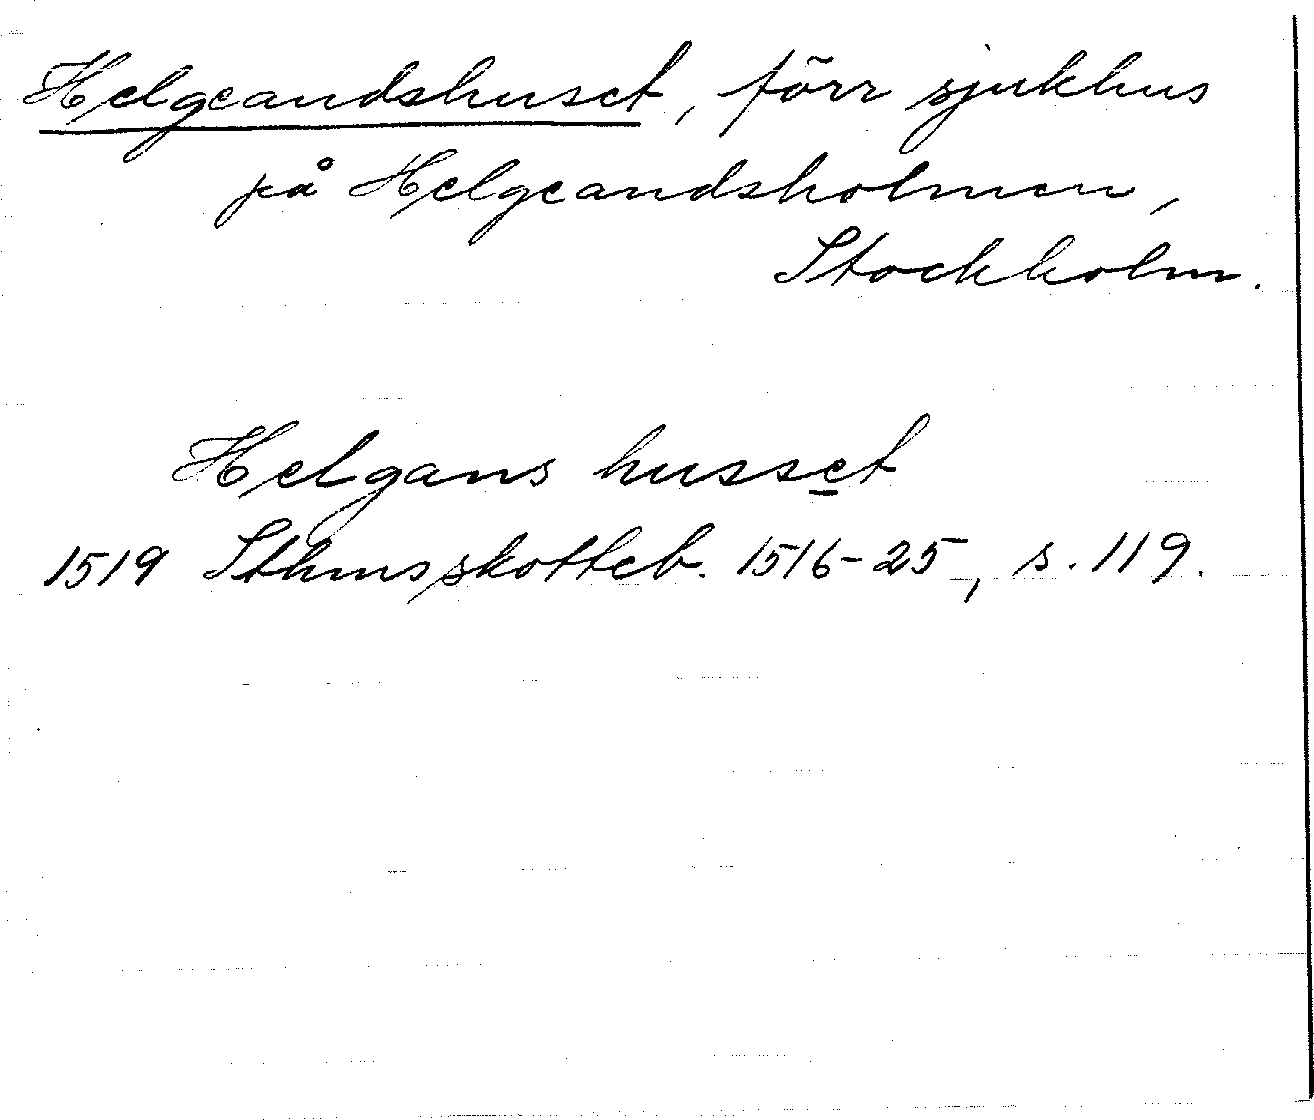 Helgeandshuset, förr sjukhus
på Helgeandsholmen,
Stockholm.
Helgans husset
1519 Sthms skotteb. 1516-25, s. 119.